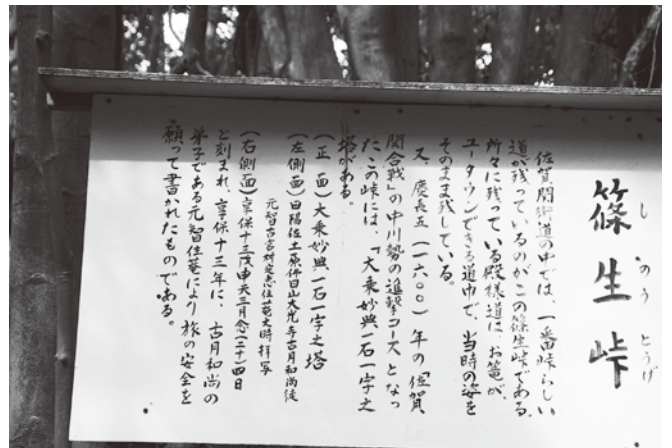 篠生峠
しのうとうげ
佐賀関街道の中では、一番峠らしい
道が残っているのがこの篠生峠である。
所々に残っている殿様道は、お篭が
ユータウンできる道巾で、当時の姿を
そのまま残している。
又、慶長五(一六〇〇)年の「佐賀
関合戦」の中川勢の進撃コースとなっ
たこの峠には、「大乗妙典一石一字之
塔がある。
(正 面)大乗妙典一石一字之塔
(左側面)日陽佐土原佛日山大光寺古月和尚徒
元智古宮村定志住菴大時拝写
(右側面)享保十三戊申天三月念(二十)四日
と刻まれ、享保十三年に、古月和尚の
弟子である元智住菴により旅の安全を
願って書かれたものである。